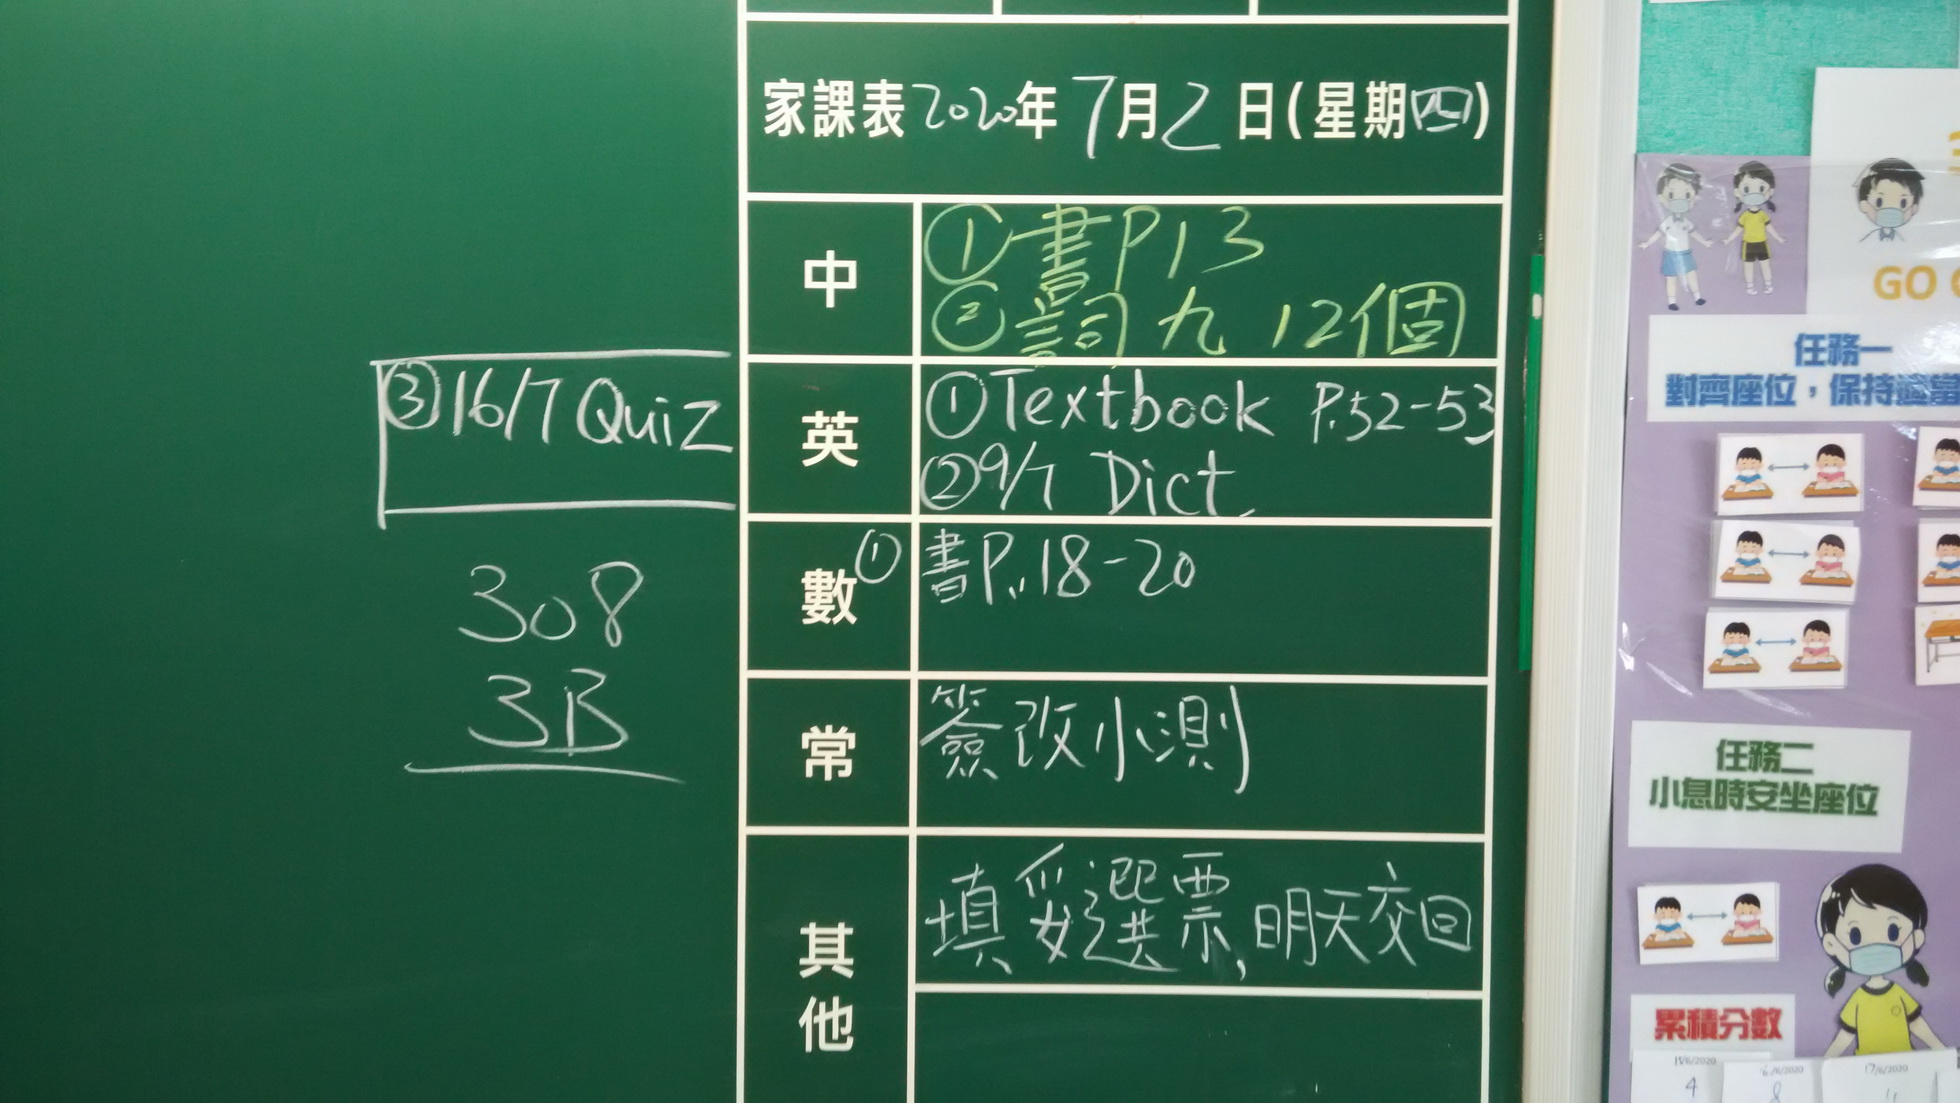 家課表2020年7月2日(星期四)
中
①書P13
②詞九 12個
英
①Textbook P.52-53
②9/7 Dict.
③16/7 Quiz
數
①書P.18-20
308
3B
常
簽改小測
其他
填妥選票,明天交回
GO
任務一
對齊座位，保持適當
任務二
小息時安坐座位
累積分數
15/6/2020
4
16/6/2020
8
17/6/2020